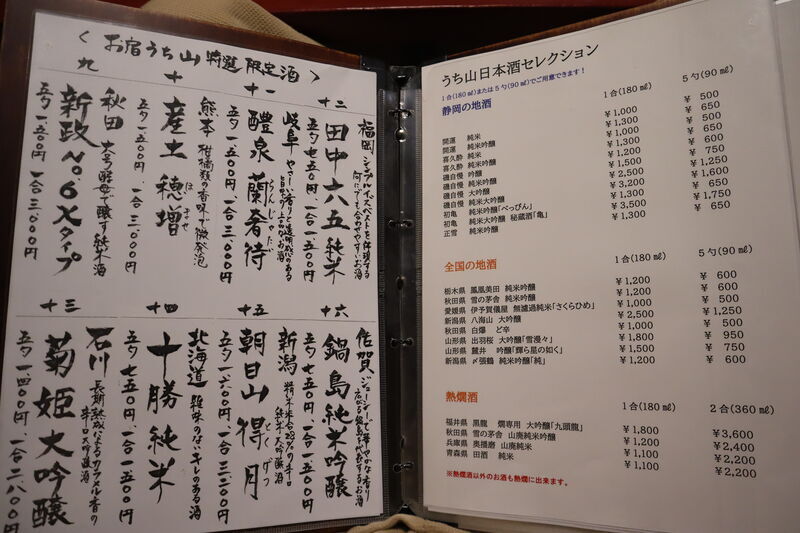 〈 お宿うち山 特選 限定酒 〉
十二
福岡 シンプルイズベストを体現する
何にでも合わせやすいお酒
田中六五 純米
五勺 七五〇円 一合 一、五〇〇円
十一
岐阜 やさしい香りと透明感のある
醴泉 蘭奢待
らんじゃたい
五勺 一、五〇〇円 一合 三、〇〇〇円
十
熊本 柑橘類の香味で微発泡
産土 穂増
ほませ
五勺 一、五〇〇円 一合 三、〇〇〇円
九
秋田 六号酵母で醸す純米酒
新政 No.6 Xタイプ
五勺 一、五〇〇円 一合 三、〇〇〇円
十六
佐賀 ジューシーで華やかな香り
鍋島 純米吟醸
五勺 七五〇円 一合 一、五〇〇円
十五
新潟 精米歩合28%の辛口
純米大吟醸酒
朝日山 得月
とくげつ
五勺 一、六〇〇円 一合 三、二〇〇円
十四
北海道 雑味のないキレのある酒
十勝 純米
五勺 七五〇円 一合 一、五〇〇円
十三
石川 長期熟成によるカプロン香の
辛口大吟醸酒
菊姫 大吟醸
五勺 一、四〇〇円 一合 二、八〇〇円
うち山日本酒セレクション
1合(180㎖)または5勺(90㎖)でご用意できます!
静岡の地酒 1合(180㎖) 5勺(90㎖)
開運 純米 ¥1,000 ¥500
開運 純米吟醸 ¥1,300 ¥650
喜久酔 純米 ¥1,000 ¥500
喜久酔 純米吟醸 ¥1,300 ¥650
磯自慢 吟醸 ¥1,200 ¥600
磯自慢 純米吟醸 ¥1,500 ¥750
磯自慢 大吟醸 ¥2,500 ¥1,250
磯自慢 純米大吟醸 ¥3,200 ¥1,600
初亀 純米吟醸「べっぴん」 ¥1,300 ¥650
初亀 純米大吟醸 秘蔵酒「亀」 ¥3,500 ¥1,750
正雪 純米吟醸 ¥1,300 ¥650
全国の地酒 1合(180㎖) 5勺(90㎖)
栃木県 鳳凰美田 純米吟醸 ¥1,200 ¥600
秋田県 雪の茅舎 純米吟醸 ¥1,200 ¥600
愛媛県 伊予賀儀屋 無濾過純米「さくらひめ」 ¥1,000 ¥500
新潟県 八海山 大吟醸 ¥2,500 ¥1,250
秋田県 白爆 ど辛 ¥1,000 ¥500
山形県 出羽桜 大吟醸「雪漫々」 ¥1,800 ¥950
山形県 麓井 吟醸「輝ら星の如く」 ¥1,500 ¥750
新潟県 〆張鶴 純米吟醸「純」 ¥1,200 ¥600
熱燗酒 1合(180㎖) 2合(360㎖)
福井県 黒龍 燗専用 大吟醸「九頭龍」 ¥1,800 ¥3,600
秋田県 雪の茅舎 山廃純米吟醸 ¥1,200 ¥2,400
兵庫県 奥播磨 山廃純米 ¥1,100 ¥2,200
青森県 田酒 純米 ¥1,100 ¥2,200
※熱燗酒以外のお酒も熱燗に出来ます。